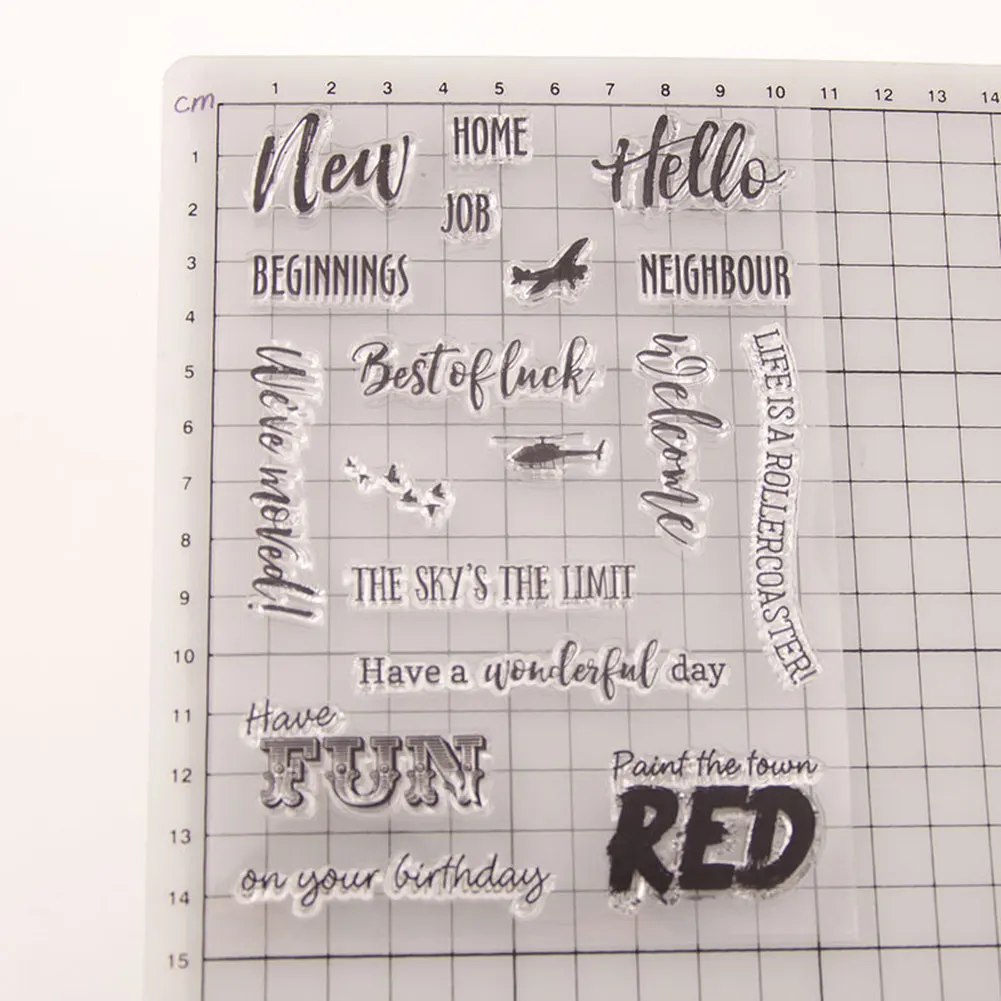 cm
1 2 3 4 5 6 7 8 9 10 11 12 13 14
1
2
3
4
5
6
7
8
9
10
11
12
13
14
15
New
HOME
Hello
JOB
BEGINNINGS
NEIGHBOUR
We've moved!
Best of luck
Welcome
LIFE IS A ROLLERCOASTER!
THE SKY'S THE LIMIT
Have a wonderful day
Have
FUN
on your birthday
Paint the town
RED